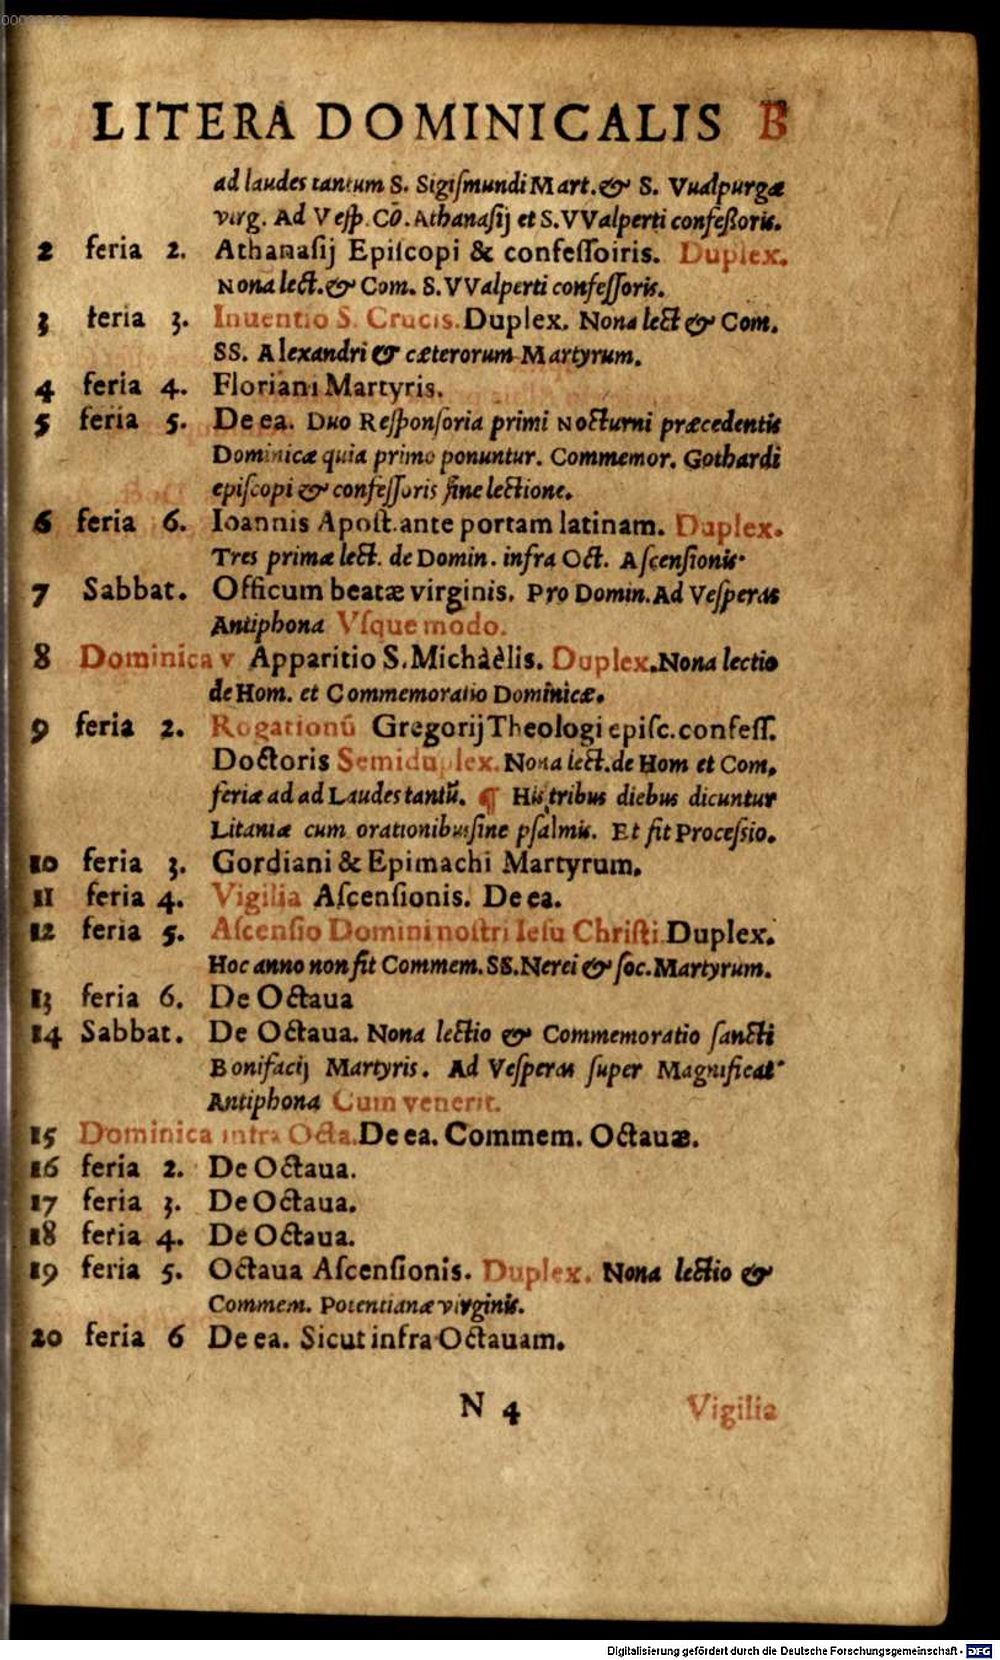 LITERA DOMINICALIS B
ad laudes tantum S. Sigiſmundi Mart. & S. Vualpurgæ
virg. Ad Veſp. Cō. Athanaſij et S. VValperti confeßoris.
2 feria 2. Athanaſij Epiſcopi & confeſſoiris. Duplex.
Nona lect. & Com. S. VValperti confeſſoris.
3 feria 3. Inuentio S. Crucis. Duplex. Nona lect & Com.
SS. Alexandri & cæterorum Martyrum.
4 feria 4. Floriani Martyris.
5 feria 5. De ea. Duo Reſponſoria primi Nocturni præcedentis
Dominicæ quia primo ponuntur. Commemor. Gothardi
epiſcopi & confeſſoris ſine lectione.
6 feria 6. Ioannis Apoſt. ante portam latinam. Duplex.
Tres primæ lect. de Domin. infra Oct. Aſcenſionis.
7 Sabbat. Officum beatæ virginis. Pro Domin. Ad Veſperas
Antiphona Vſque modo.
8 Dominica v Apparitio S. Michàèlis. Duplex. Nona lectio
de Hom. et Commemoratio Dominicæ.
9 feria 2. Rogationū Gregorij Theologi epiſc. confeſſ.
Doctoris Semiduplex. Nona lect. de Hom et Com.
feriæ ad ad Laudes tantū. ¶ His tribus diebus dicuntur
Litaniæ cum orationibus ſine pſalmis. Et fit Proceſsio.
10 feria 3. Gordiani & Epimachi Martyrum.
11 feria 4. Vigilia Aſcenſionis. De ea.
12 feria 5. Aſcenſio Domini noſtri Ieſu Chriſti. Duplex.
Hoc anno non fit Commem. SS. Nerei & ſoc. Martyrum.
13 feria 6. De Octaua
14 Sabbat. De Octaua. Nona lectio & Commemoratio ſancti
Bonifacij Martyris. Ad Veſperas ſuper Magnificat
Antiphona Cum venerit.
15 Dominica intra Octa. De ea. Commem. Octauæ.
16 feria 2. De Octaua.
17 feria 3. De Octaua.
18 feria 4. De Octaua.
19 feria 5. Octaua Aſcenſionis. Duplex. Nona lectio &
Commem. Potentianæ virginis.
20 feria 6 De ea. Sicut infra Octauam.
N 4 Vigilia
Digitalisierung gefördert durch die Deutsche Forschungsgemeinschaft - DFG